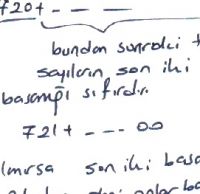 720+ - - -
bundan sonraki +
sayıların son iki
basamağı sıfırdır.
721+ - - - 00
lmırsa son iki basa